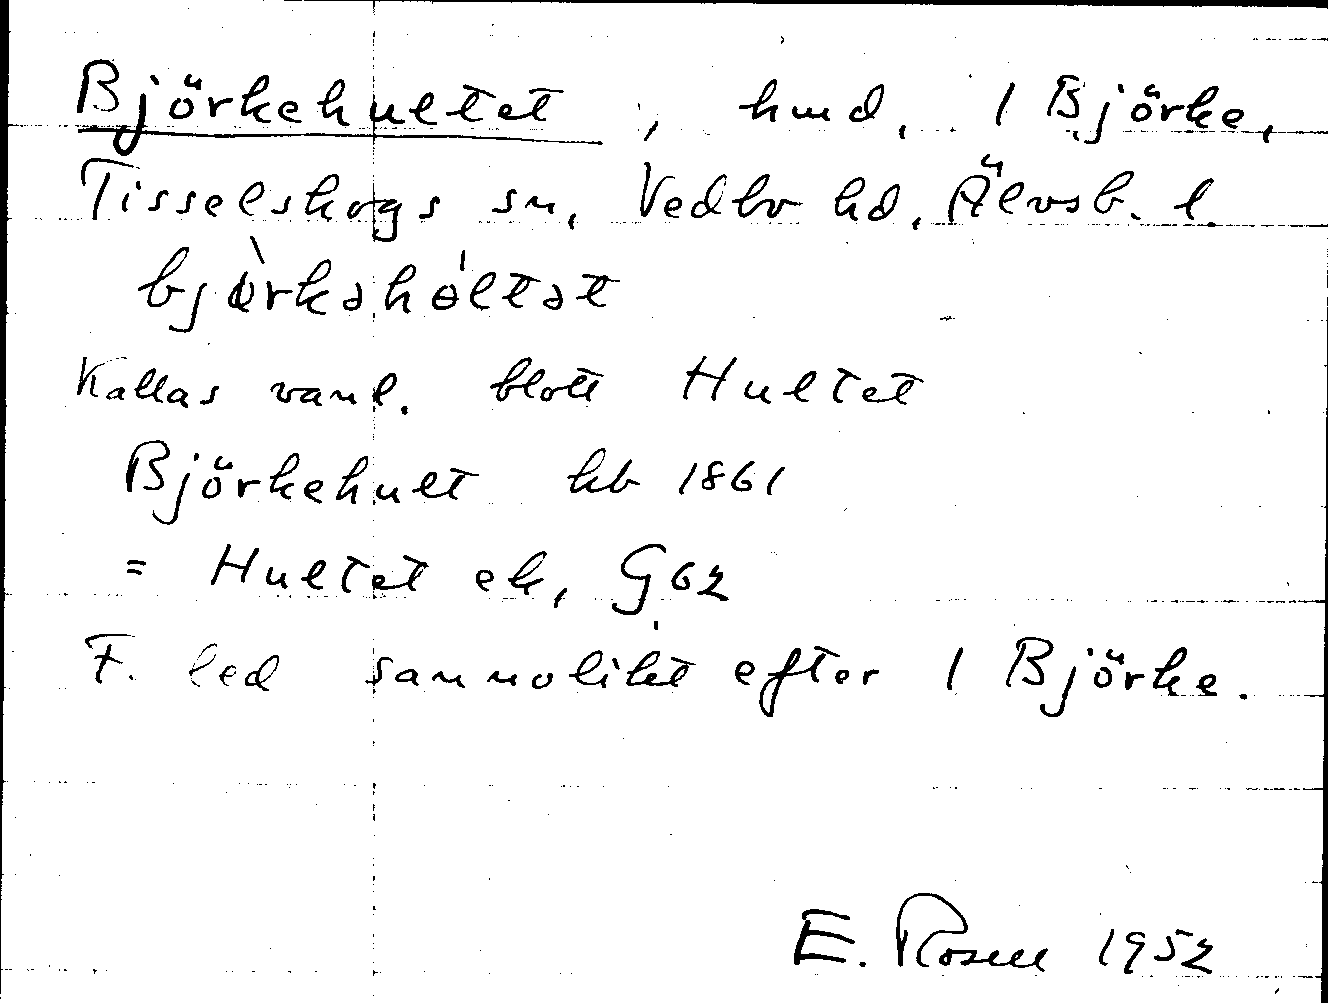 Björkehultet, hmd, 1 Björke,
Tisselskogs sn, Vedbo hd, Älvsb. l.
bjòrkəhóltət
Kallas vanl. blott Hultet
Björkehult kb 1861
= Hultet ek, G 62
F. led sannolikt efter 1 Björke.
E. Rosell 1952